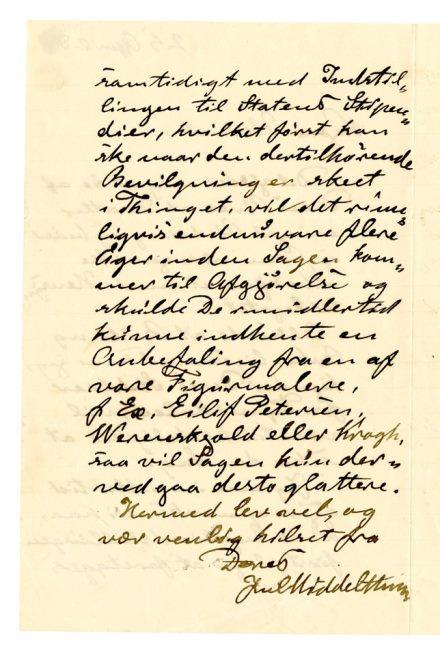 samtidigt med Indstil-
lingen til Statens Stipen-
dier, hvilket først kan
ske naar den dertilhørende
Bevilgning er skeet
i Thinget, vil det rime-
ligvis endnu vare flere
Uger inden Sagen kom-
mer til Afgjørelse og
skulde De imidlertid
kunne indhente en
Anbefaling fra en af
vore Figurmalere,
f Ex. Eilif Petersen,
Werenskjold eller Krogh,
saa vil Sagen kun der-
ved gaa desto glattere.
Hermed lev vel, og
vær venlig hilset fra
Deres
Jul Middelthun